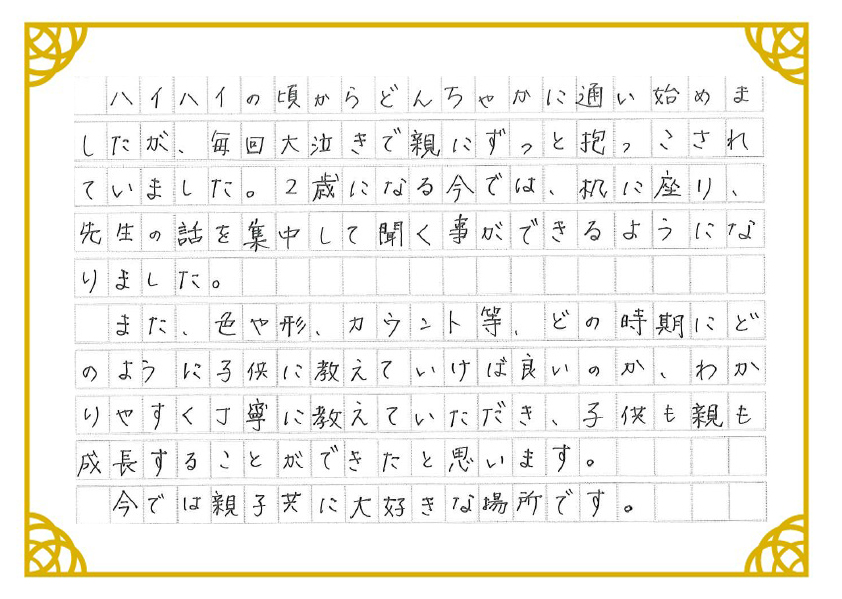 ハイハイの頃からどんちゃかに通い始めま
したが、毎回大泣きで親にずっと抱っこされ
ていました。2歳になる今では、机に座り、
先生の話を集中して聞く事ができるようにな
りました。
また、色や形、カウント等、どの時期にど
のように子供に教えていけば良いのか、わか
りやすく丁寧に教えていただき、子供も親も
成長することができたと思います。
今では親子共に大好きな場所です。